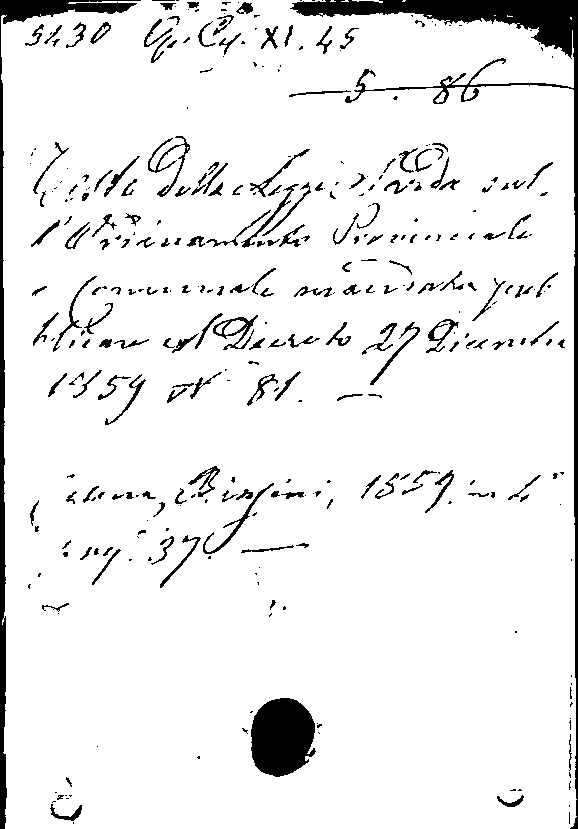 5430 Op. Cy. XI. 45
5. 86
Testo della Legge Sarda sul-
l'Ordinamento Provinciale
e Comunale mandata pub
blicare col Decreto 27 Dicembre
1859 N° 81. —
Biagini, 1859. in 4°
pag. 37. —